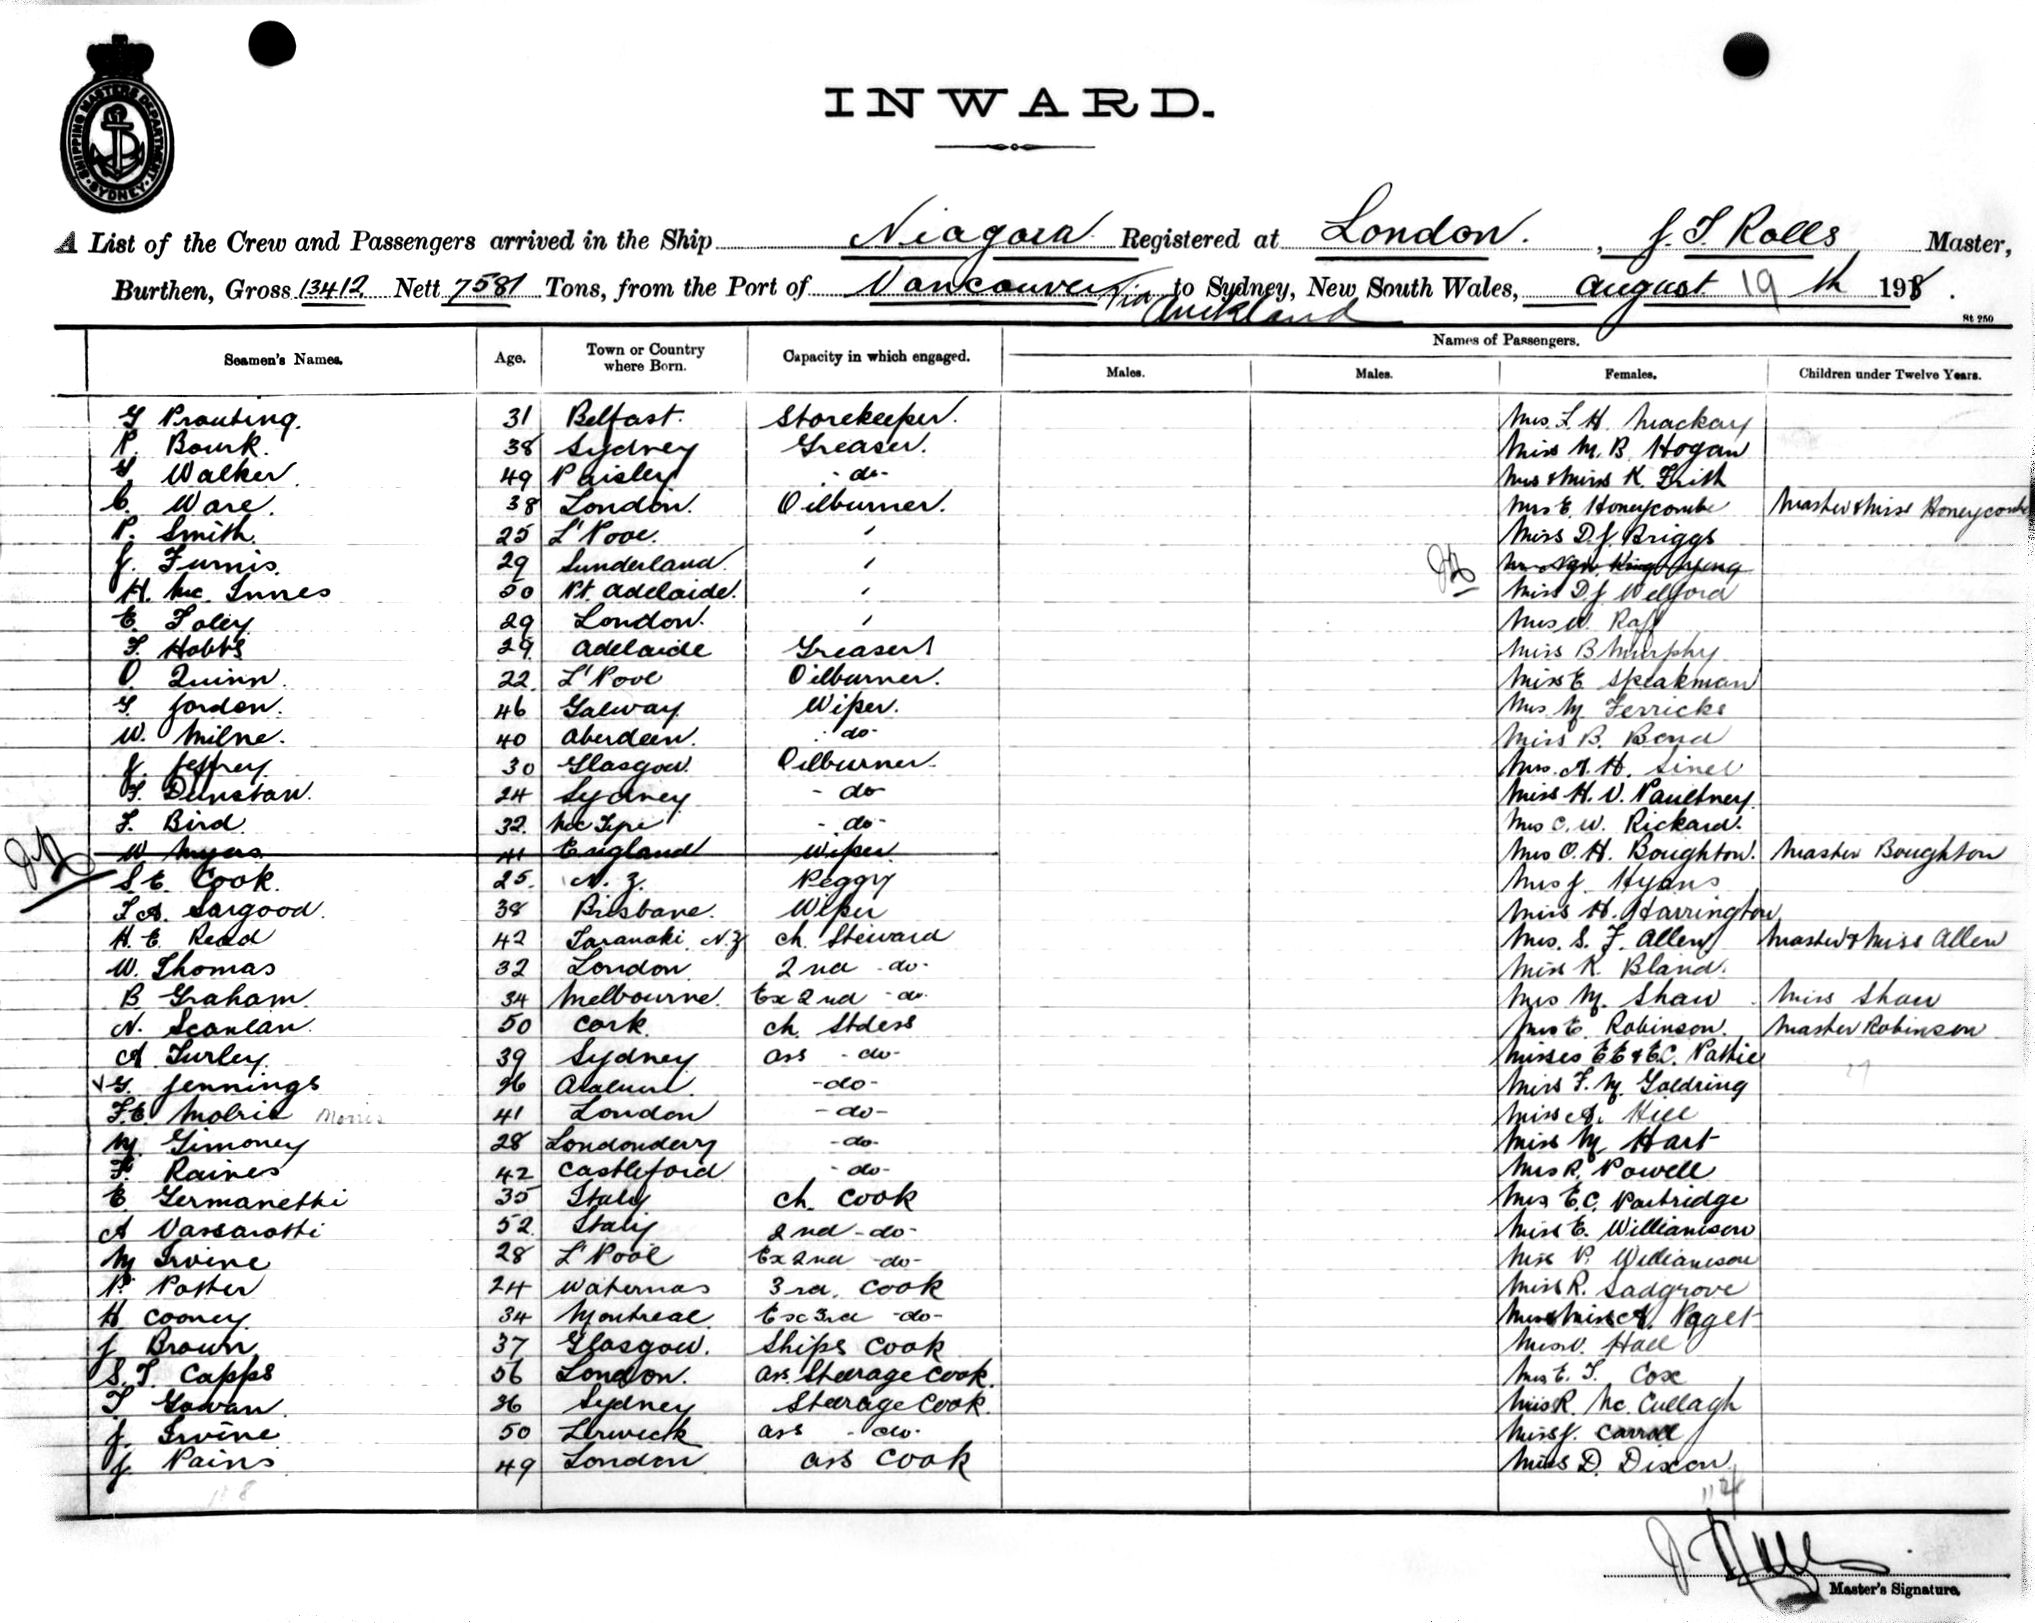 SHIPPING MASTERS DEPARTMENT SYDNEY
INWARD.
A List of the Crew and Passengers arrived in the Ship Niagara Registered at London. , J. T. Rolls Master,
Burthen, Gross 13412 Nett 7581 Tons, from the Port of Vancouver Via Auckland to Sydney, New South Wales, August 19th 19
St 250
Seamen's Names. Age. Town or Country where Born. Capacity in which engaged. Names of Passengers.
Males. Males. Females. Children under Twelve Years.
G Prouting. 31 Belfast. Storekeeper. Mrs L H Mackay
P. Bourk. 38 Sydney Greaser. Miss M. B. Hogan
G Walker. 49 Paisley - do- Mrs & Miss K. Frith
C. Ware. 38 London. Oilburner. Mrs E. Honeycombe Master & Miss Honeycombe
P. Smith. 25 L'Pool. ' Miss D. J. Briggs
J. Furnis. 29 Sunderland. '
H. Mc Innes 50 Pt. Adelaide. ' Miss D. J. Welford
E. Foley 29 London. ' Mrs W. Raff
F. Hobbs 29. Adelaide Greaser Miss B Murphy
O. Quinn. 22. L'Pool Oilburner. Miss E Speakman
G. Jordon. 46 Galway. Wiper. Mrs M. Ferricks
W. Milne. 40 Aberdeen. - do- Miss B. Bond
J. Jeffrey 30 Glasgow. Oilburner. Mrs. A. H. Sinel
F. Dunstan. 24 Sydney - do- Miss H. V. Paultney.
F. Bird. 32. - do- Mrs C. W. Rickard.
W Myers 41 England Wiper. Mrs O. H. Boughton. Master Boughton
S. E. Cook. 25. N. Z. Peggy Mrs J. Hyans
F. A. Sargood. 38 Brisbane. Wiper Miss H. Harrington
H. E. Read 42 Taranaki, N.Z ch. Steward Mrs. S. F. Allen Master & Miss Allen
W. Thomas 32 London 2nd -do- Miss K. Bland.
B. Graham. 34 Melbourne. Ex 2nd -do- Mrs M. Shaw Miss Shaw
N. Scanlan. 50 Cork. ch. Stdess Mrs E. Robinson. Master Robinson
A Turley. 39 Sydney ass -do- Misses E E & E. C. Pattie
G. Jennings 26 -do- Miss F. M. Goldring
F. E. Molric Morris 41 London -do- Miss A. Hill
M. Gimoney 28 Londonderry -do- Miss M. Hart
F. Raines 42 Castleford -do- Mrs R. Powell
E Germanetti 35 Italy ch. Cook Mrs E. C. Partridge
A Vassarotti 52. Italy 2nd -do- Miss E. Williamson
M Irvine 28 L'Pool Ex 2nd -do- Miss P. Williamson
P. Potter 24 3rd. Cook Miss R. Sadgrove
H Cooney. 34 Montreal. Ex 3rd -do- Mrs & Miss A. Paget
J Brown 37 Glasgow. Ships Cook Miss V. Hall
S. T. Capps 56 London. ass. Steerage Cook. Mrs E. T. Cox
T Gowan. 36 Sydney Steerage Cook. Miss R. Mc. Cullagh
J. Irvine 50 Lerwick ass -do- Miss J. Carroll
J Pains 49 London. ass Cook Miss D. Dixon
Master's Signature.